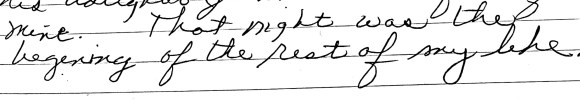 mine. That night was the
begening of the rest of my life.